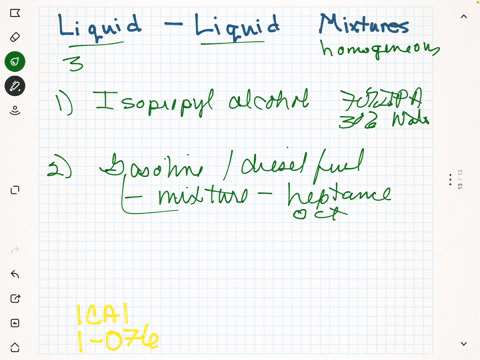 Liquid - Liquid Mixtures
homogeneous
3
1) Isopropyl alcohol 70% IPA
30% Wate
2) Gasoline / diesel fuel
- mixture - heptance
oct
1CA1
1-076
13 / 13